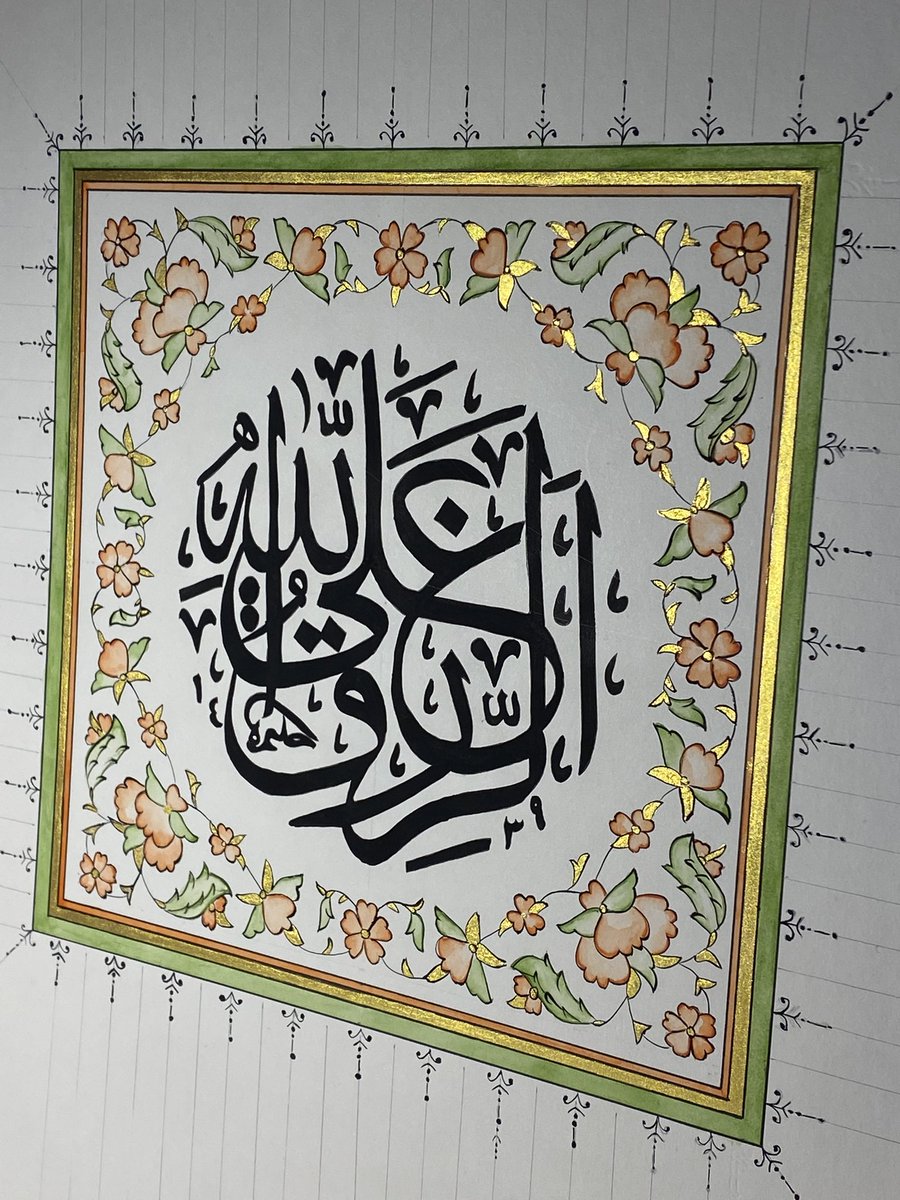 الرِّزْقُ عَلَى اللّٰهِ